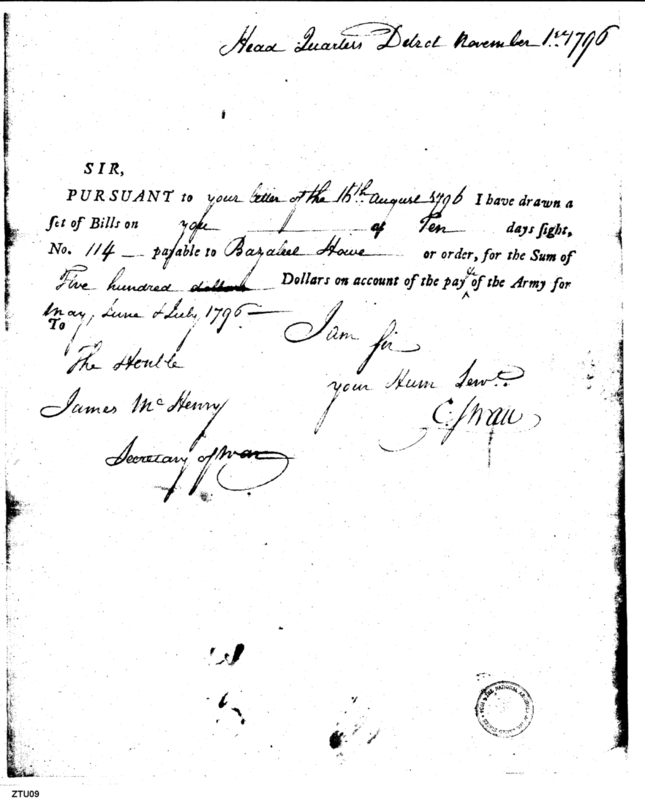 Head Quarters Detrct November 1st 1796
SIR,
PURSUANT to your letter of the 15th August 1796 I have drawn a
ſet of Bills on you at Ten days ſight,
No. 114 payable to Bazaleel Howe or order, for the Sum of
Five hundred dollars Dollars on account of the pay &c of the Army for
May, June & July 1796
To
I am Sir
The Honble
your Hum Servt.
James McHenry
C. Swan
Secretary of War
ZTU09